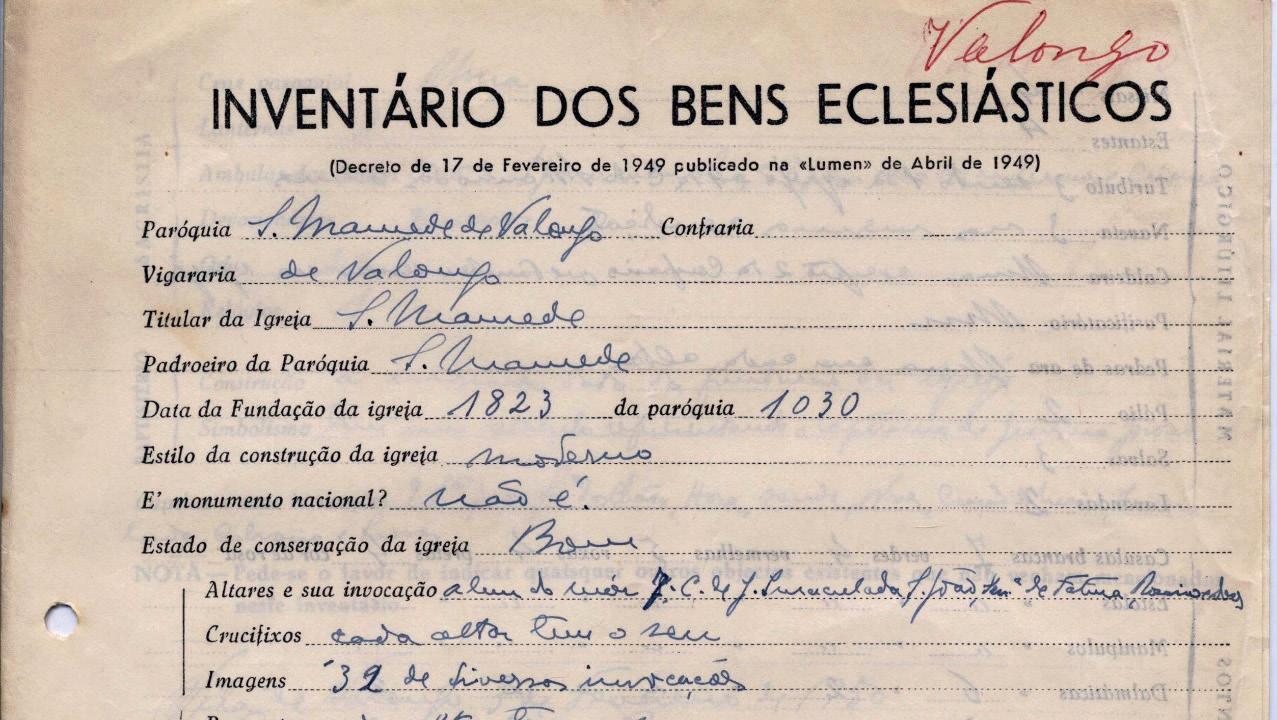 Valongo
INVENTÁRIO DOS BENS ECLESIÁSTICOS
(Decreto de 17 de Fevereiro de 1949 publicado na «Lumen» de Abril de 1949)
Paróquia S. Mamede de Valongo Contraria
Vigararia de Valongo
Titular da Igreja S. Mamede
Padroeiro da Paróquia S. Mamede
Data da Fundação da igreja 1823 da paróquia 1030
Estilo da construção da igreja moderno
E' monumento nacional? não é.
Estado de conservação da igreja Bom
Altares e sua invocação alem do mór 7. C. de J. Imaculada S. João de Fatima
Crucifixos cada altar tem o seu
Imagens 32 de diversas invocações